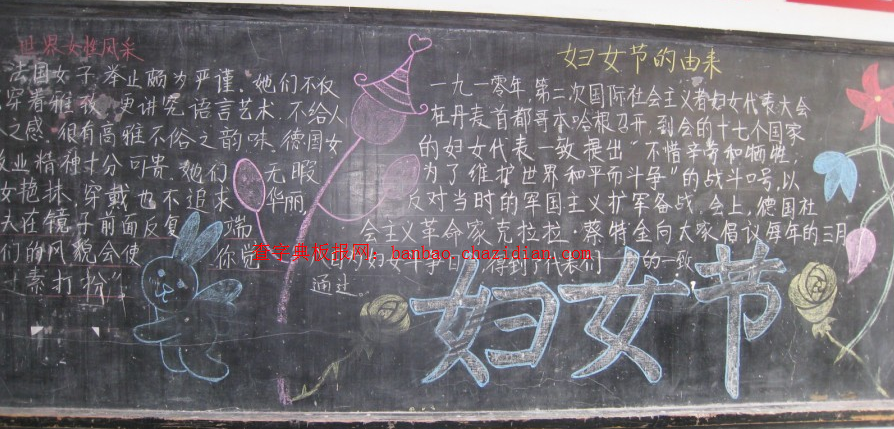 世界女性风采
法国女子,举止颇为严谨,她们不仅
穿着雅致,更讲究语言艺术,不给人
之感,很有高雅不俗之韵味,德国女
业精神十分可贵,她们 无暇
女艳抹,穿戴也不追求 华丽,
在镜子前面反复 端
们的风貌会使 你觉
素打扮"
妇女节的由来
一九一零年,第二次国际社会主义者妇女代表大会
在丹麦首都哥本哈根召开,到会的十七个国家
的妇女代表一致提出"不惜辛劳和牺牲,
为了维护世界和平而斗争"的战斗口号,以
反对当时的军国主义扩军备战。会上,德国社
会主义革命家克拉拉·蔡特金向大家倡议每年的三月
为妇女斗争日,得到了代表们 的一致
通过。
字典板报网:banbao.chazidian.com
妇女节